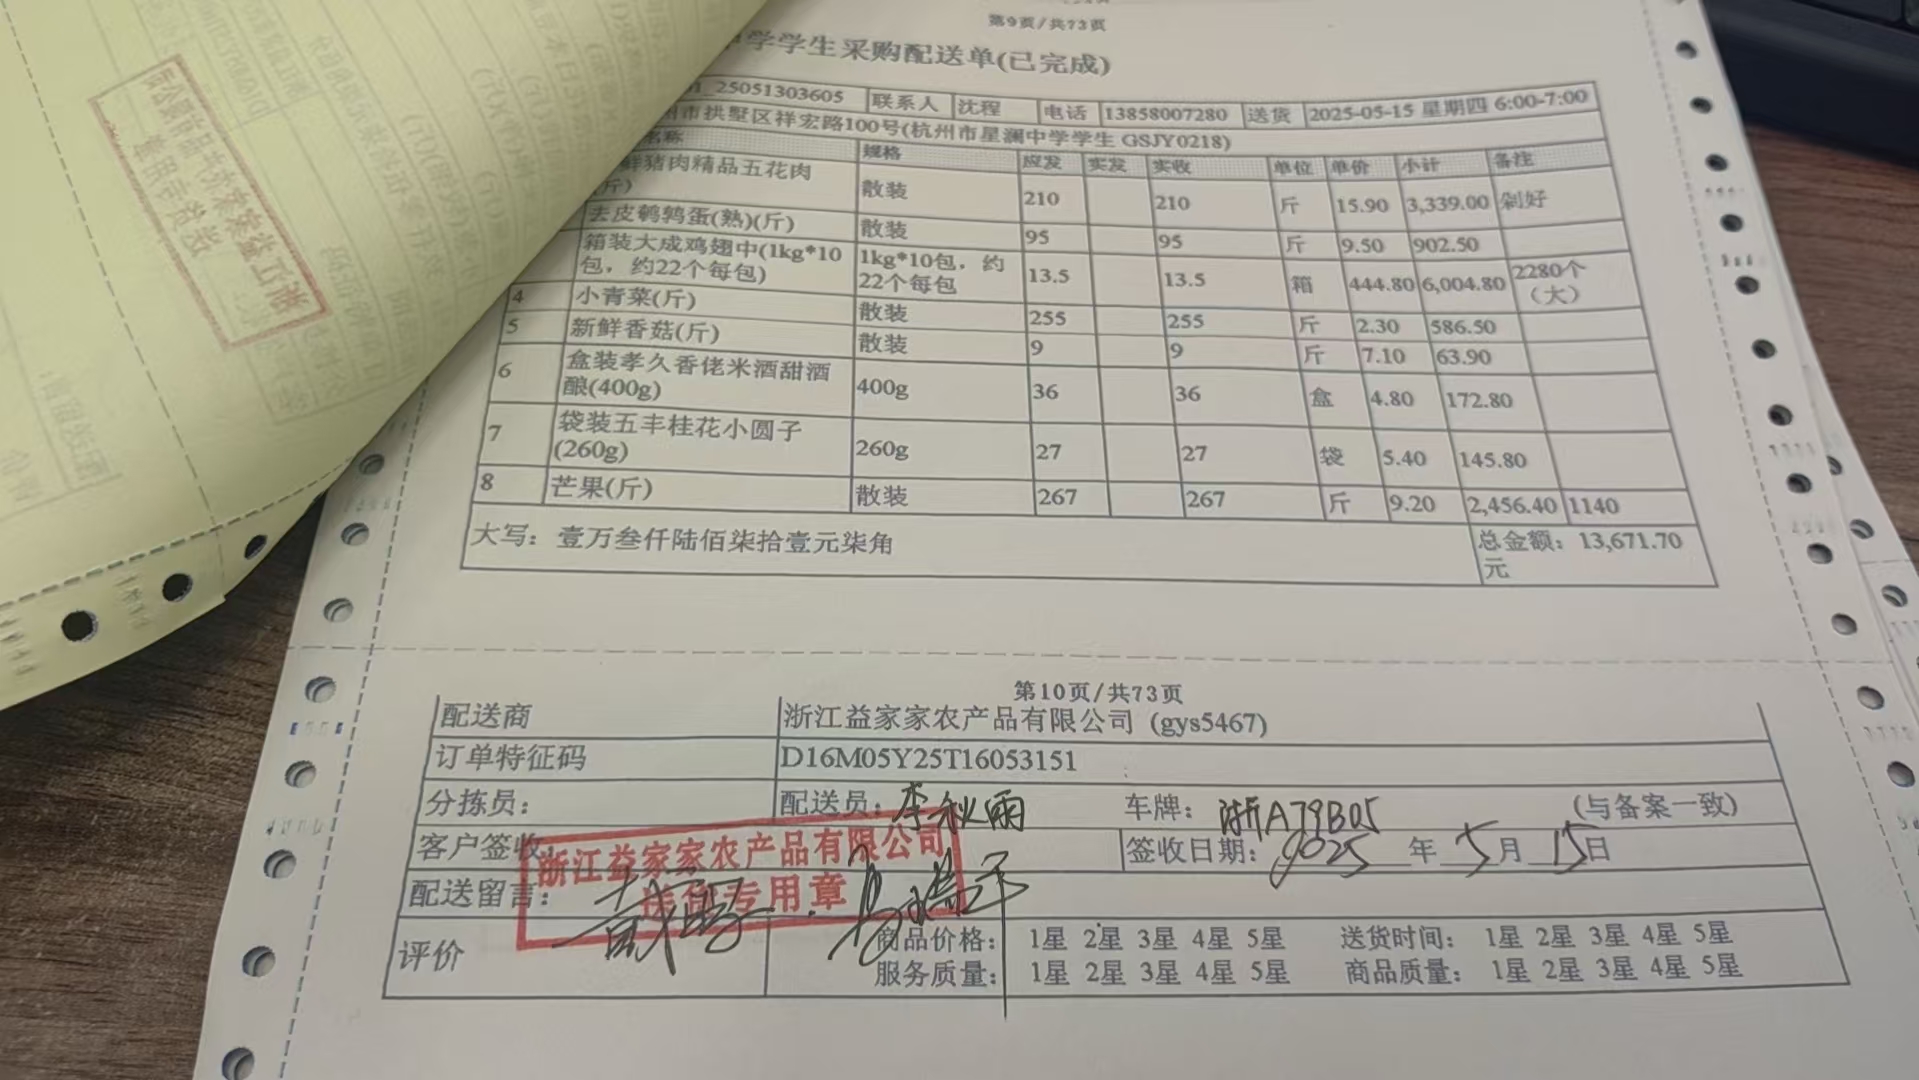 第9页/共73页
中学学生采购配送单(已完成)
25051303605 联系人 沈程 电话 13858007280 送货 2025-05-15 星期四 6:00-7:00
州市拱墅区祥宏路100号(杭州市星澜中学学生 GSJY0218)
名称 规格 应发 实发 实收 单位 单价 小计 备注
鲜猪肉精品五花肉(斤) 散装 210 210 斤 15.90 3,339.00 剁好
去皮鹌鹑蛋(熟)(斤) 散装 95 95 斤 9.50 902.50
箱装大成鸡翅中(1kg*10包，约22个每包) 1kg*10包，约22个每包 13.5 13.5 箱 444.80 6,004.80 2280个（大）
4 小青菜(斤) 散装 255 255 斤 2.30 586.50
5 新鲜香菇(斤) 散装 9 9 斤 7.10 63.90
6 盒装孝久香佬米酒甜酒酿(400g) 400g 36 36 盒 4.80 172.80
7 袋装五丰桂花小圆子(260g) 260g 27 27 袋 5.40 145.80
8 芒果(斤) 散装 267 267 斤 9.20 2,456.40 1140
大写：壹万叁仟陆佰柒拾壹元柒角 总金额：13,671.70元
第10页/共73页
配送商 浙江益家家农产品有限公司 (gys5467)
订单特征码 D16M05Y25T16053151
分拣员： 配送员：李秋雨 车牌：浙A79B05 (与备案一致)
客户签收： 签收日期：2025年5月15日
浙江益家家农产品有限公司
送货专用章
配送留言：
评价 商品价格： 1星 2星 3星 4星 5星 送货时间： 1星 2星 3星 4星 5星
服务质量： 1星 2星 3星 4星 5星 商品质量： 1星 2星 3星 4星 5星